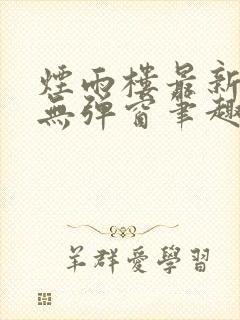 煙雨樓最新
無彈窗筆趣
羊群愛學習